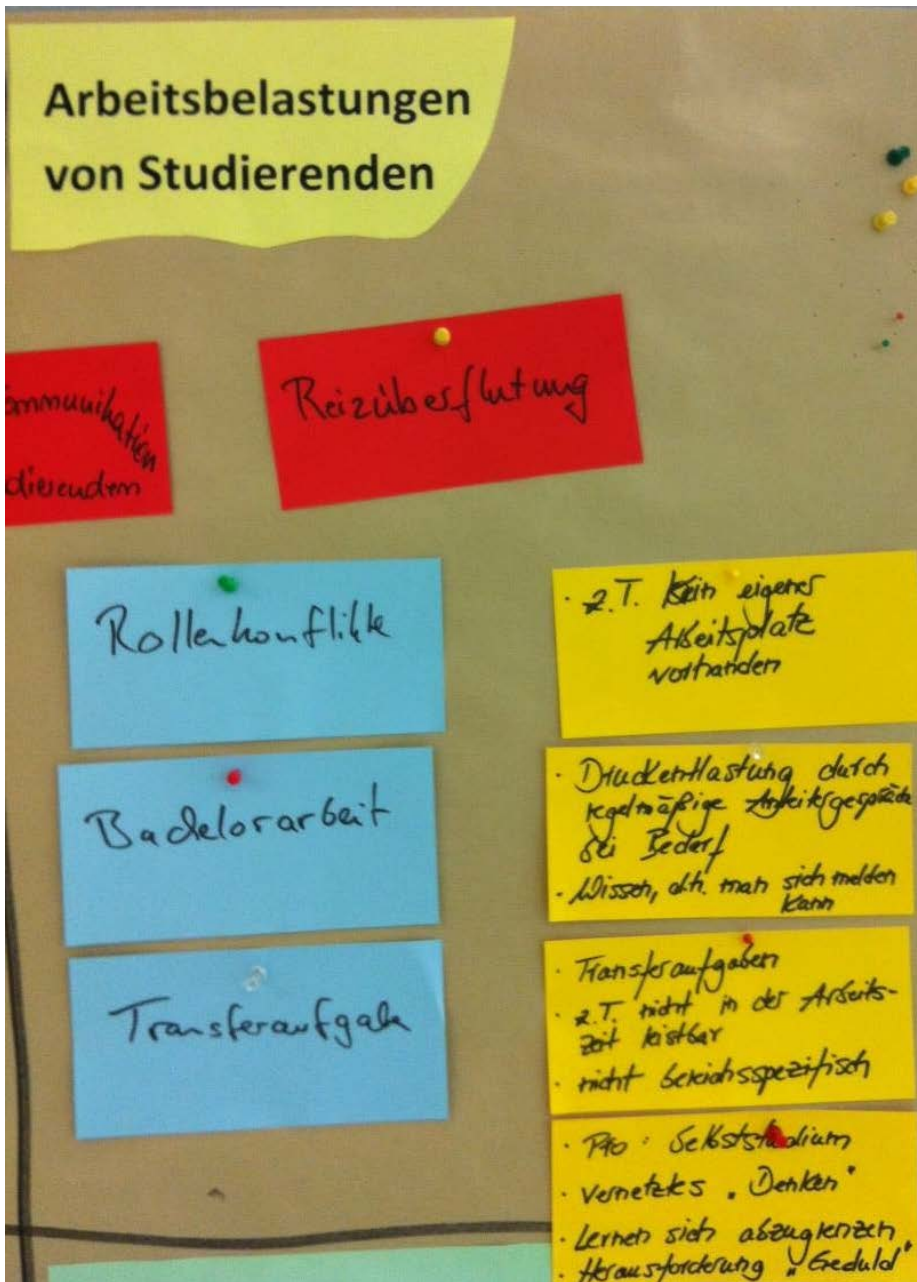 Arbeitsbelastungen
von Studierenden
ommunikation
dierendem
Reizüberflutung
Rollenkonflikte
Bachelorarbeit
Transferaufgabe
· z.T. Kein eigener
Arbeitsplatz
vorhanden
· Druckentlastung durch
regelmäßige Arbeitsgespräche
bei Bedarf
· Wissen, d.h. man sich melden
kann
· Transferaufgaben
· z.T. nicht in der Arbeits-
zeit leistbar
· nicht bereichsspezifisch
· Pro: Selbststudium
· vernetztes „Denken"
· Lernen sich abzugrenzen
· Herausforderung „Geduld"